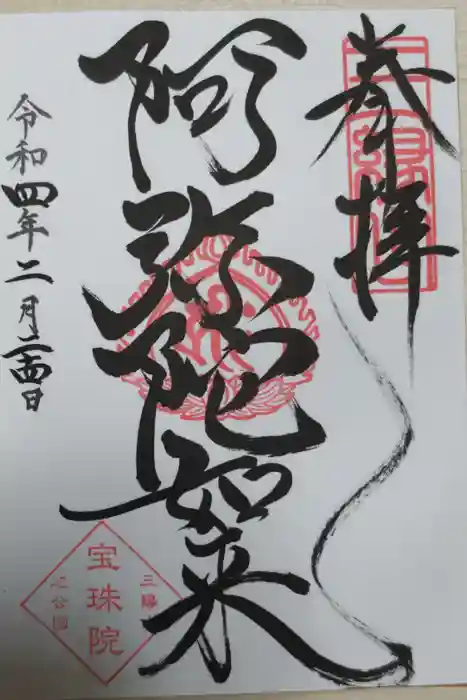 奉拝
阿弥陀如来
令和四年二月二十四日
宝珠院
芝公園